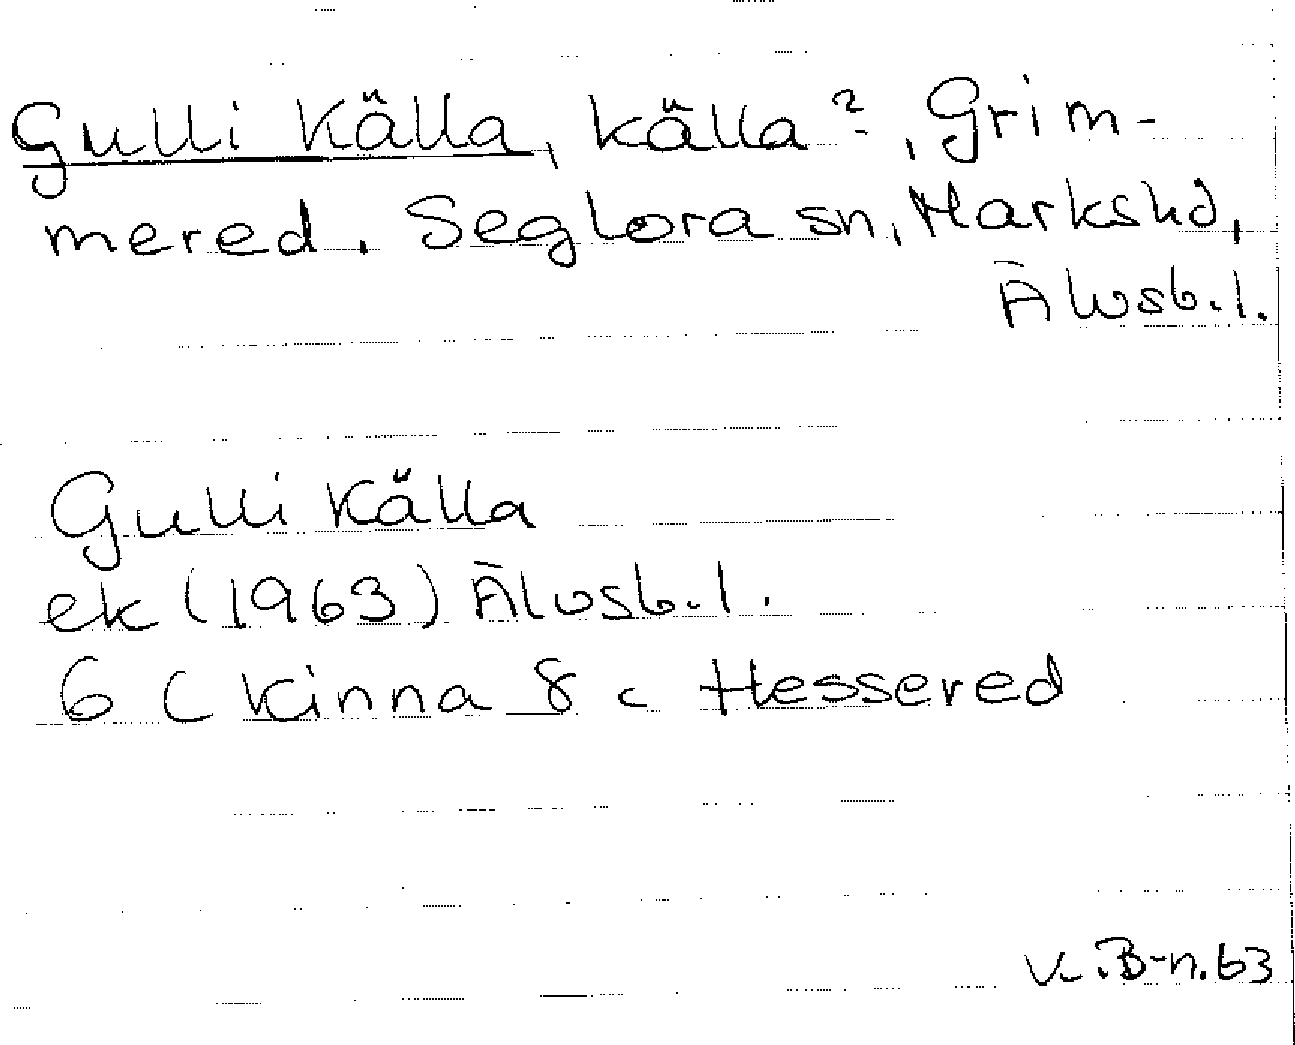 Gulli Källa, källa?, Grim-
mered. Seglora sn, Markshd,
Älvsb.l.
Gulli Källa
ek (1963) Älvsb.l.
6 C Kinna 8 c Hessered
V. B-n. 63